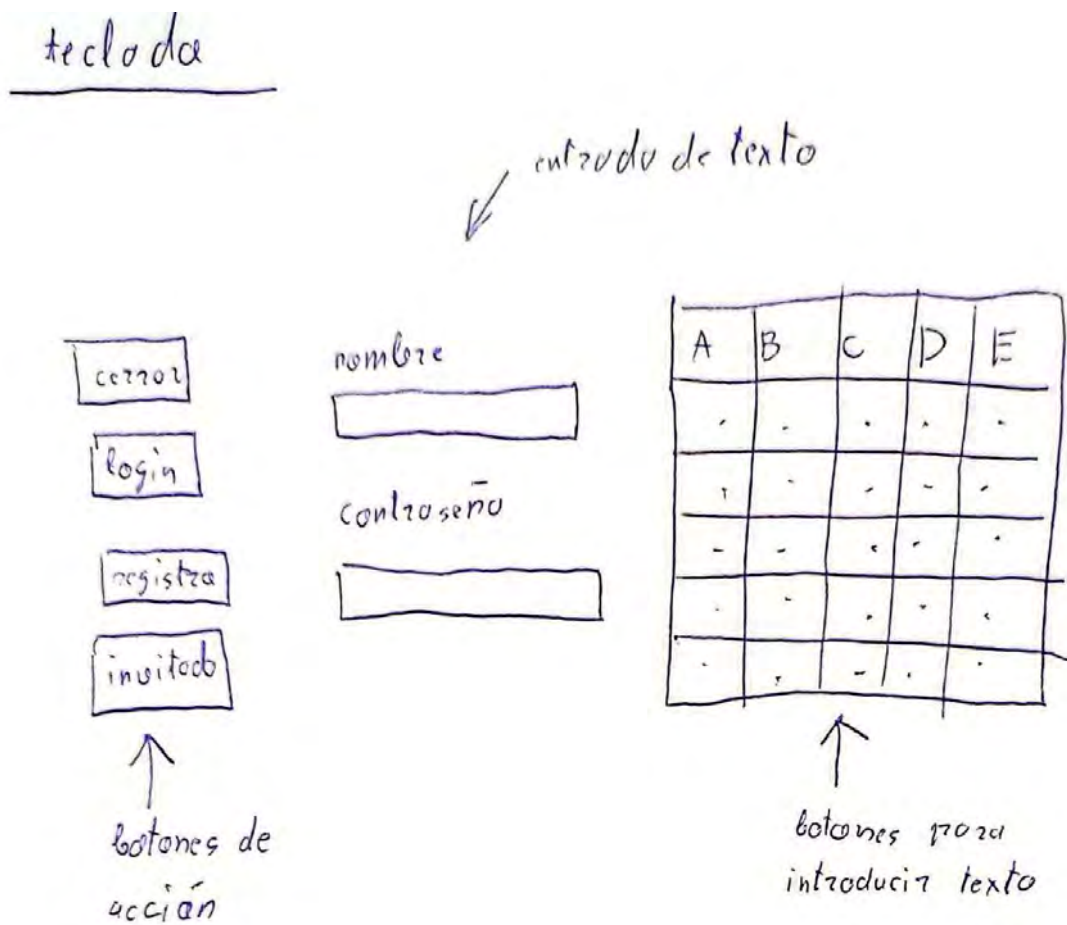 teclado
entrada de texto
cerrar
login
registra
invitado
nombre
contraseña
A B C D E
botones de
acción
botones para
introducir texto